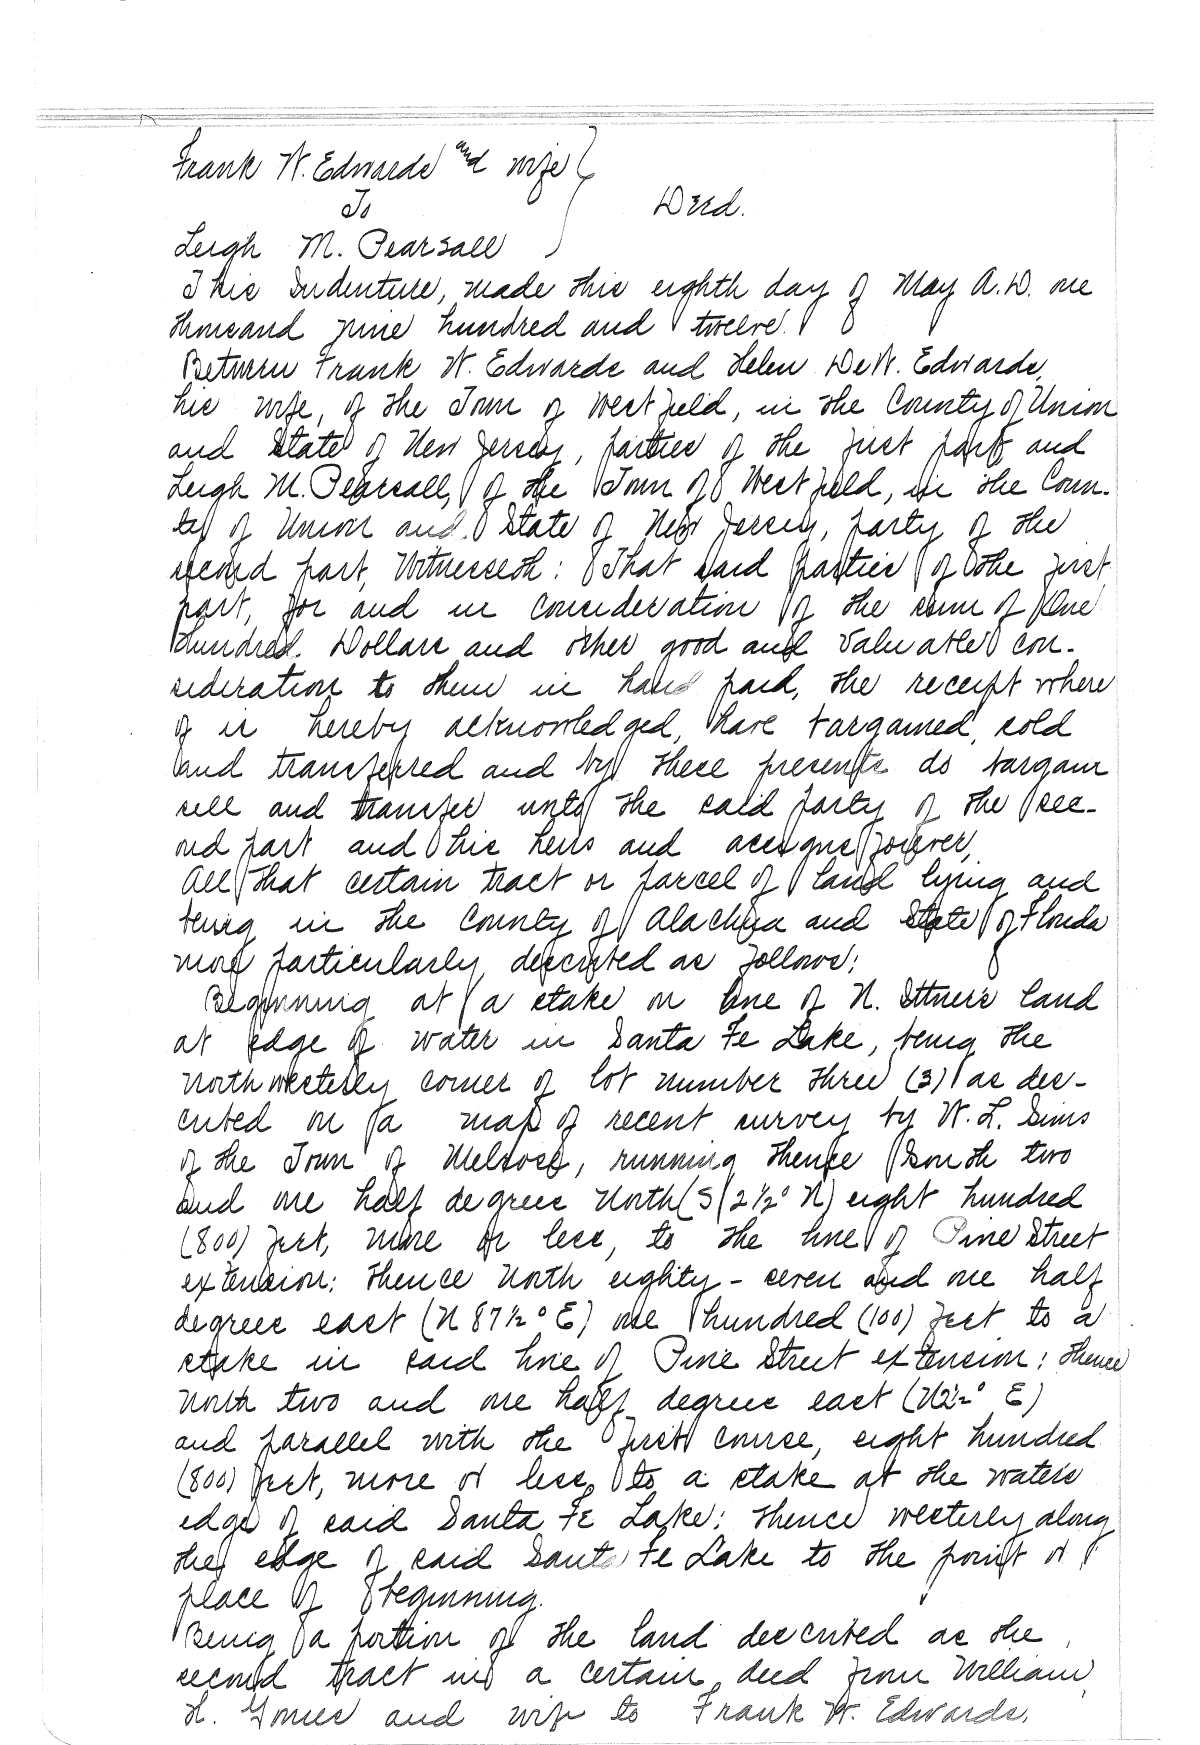 Frank W. Edwards and wife
To
Deed.
Leigh M. Pearsall
This Indenture, made this eighth day of May A.D. one
thousand nine hundred and twelve.
Between Frank W. Edwards and Helen DeW. Edwards,
his wife, of the Town of Westfield, in the County of Union
and State of New Jersey, parties of the first part and
Leigh M. Pearsall, of the Town of Westfield, in the Coun-
ty of Union and State of New Jersey, party of the
second part, Witnesseth: That said parties of the first
part, for and in consideration of the sum of One
Hundred Dollars and other good and valuable con-
sideration to them in hand paid, the receipt where
of is hereby acknowledged, have bargained, sold
and transferred and by these presents do bargain
sell and transfer unto the said party of the sec-
ond part and his heirs and assigns forever,
All that certain tract or parcel of land lying and
being in the County of Alachua and State of Florida
more particularly described as follows:
Beginning at a stake on line of N. Ittner's land
at edge of water in Santa Fe Lake, being the
Northwesterly corner of lot number three (3) as des-
cribed on a map of recent survey by W. L. Sims
of the Town of Melrose, running thence South two
and one half degrees North (S 2 1/2° N) eight hundred
(800) feet, more or less, to the line of Pine Street
extension: thence North eighty-seven and one half
degrees east (N 87 1/2° E) one hundred (100) feet to a
stake in said line of Pine Street extension: thence
North two and one half degrees east (N 2 1/2° E)
and parallel with the first course, eight hundred
(800) feet, more or less, to a stake at the waters
edge of said Santa Fe Lake: thence westerly along
the edge of said Santa Fe Lake to the point or
place of beginning.
Being a portion of the land described as the
second tract in a certain deed from William
and wife to Frank W. Edwards,